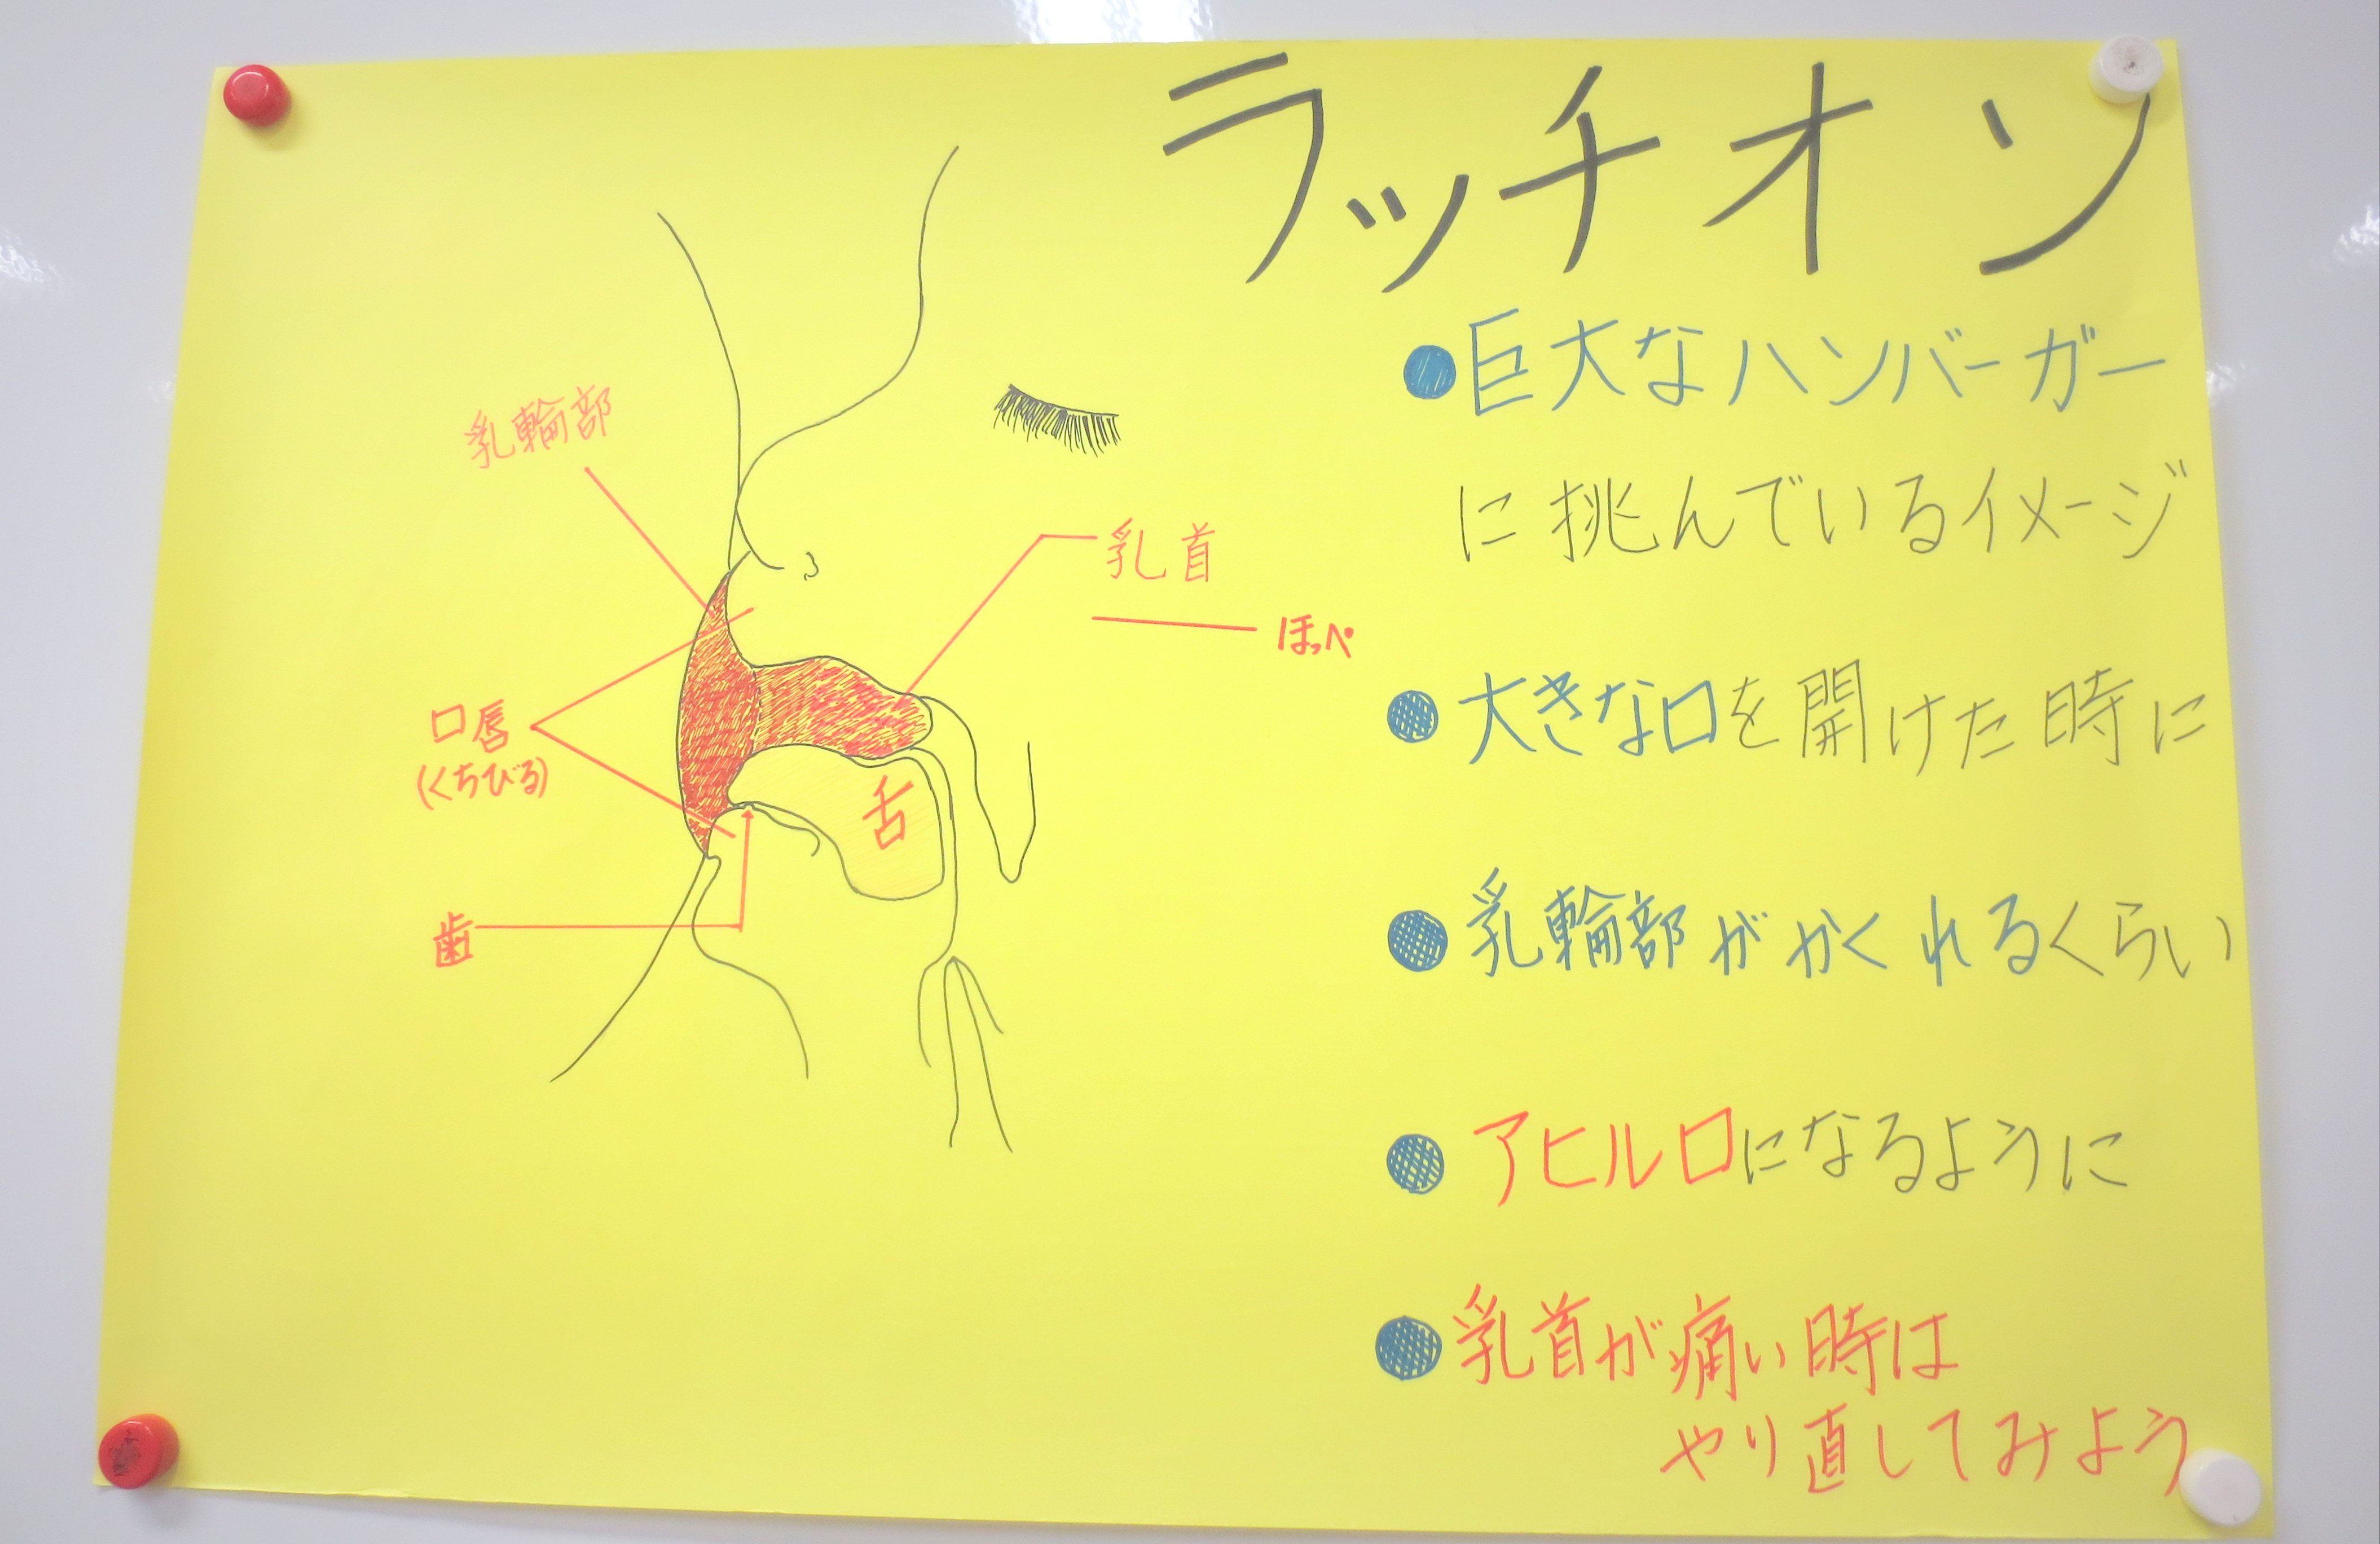 ラッチオン
●巨大なハンバーガー
に挑んでいるイメージ
●大きな口を開けた時に
●乳輪部がかくれるくらい
●アヒル口になるように
●乳首が痛い時は
やり直してみよう
乳輪部
乳首
ほっぺ
口唇
(くちびる)
舌
歯